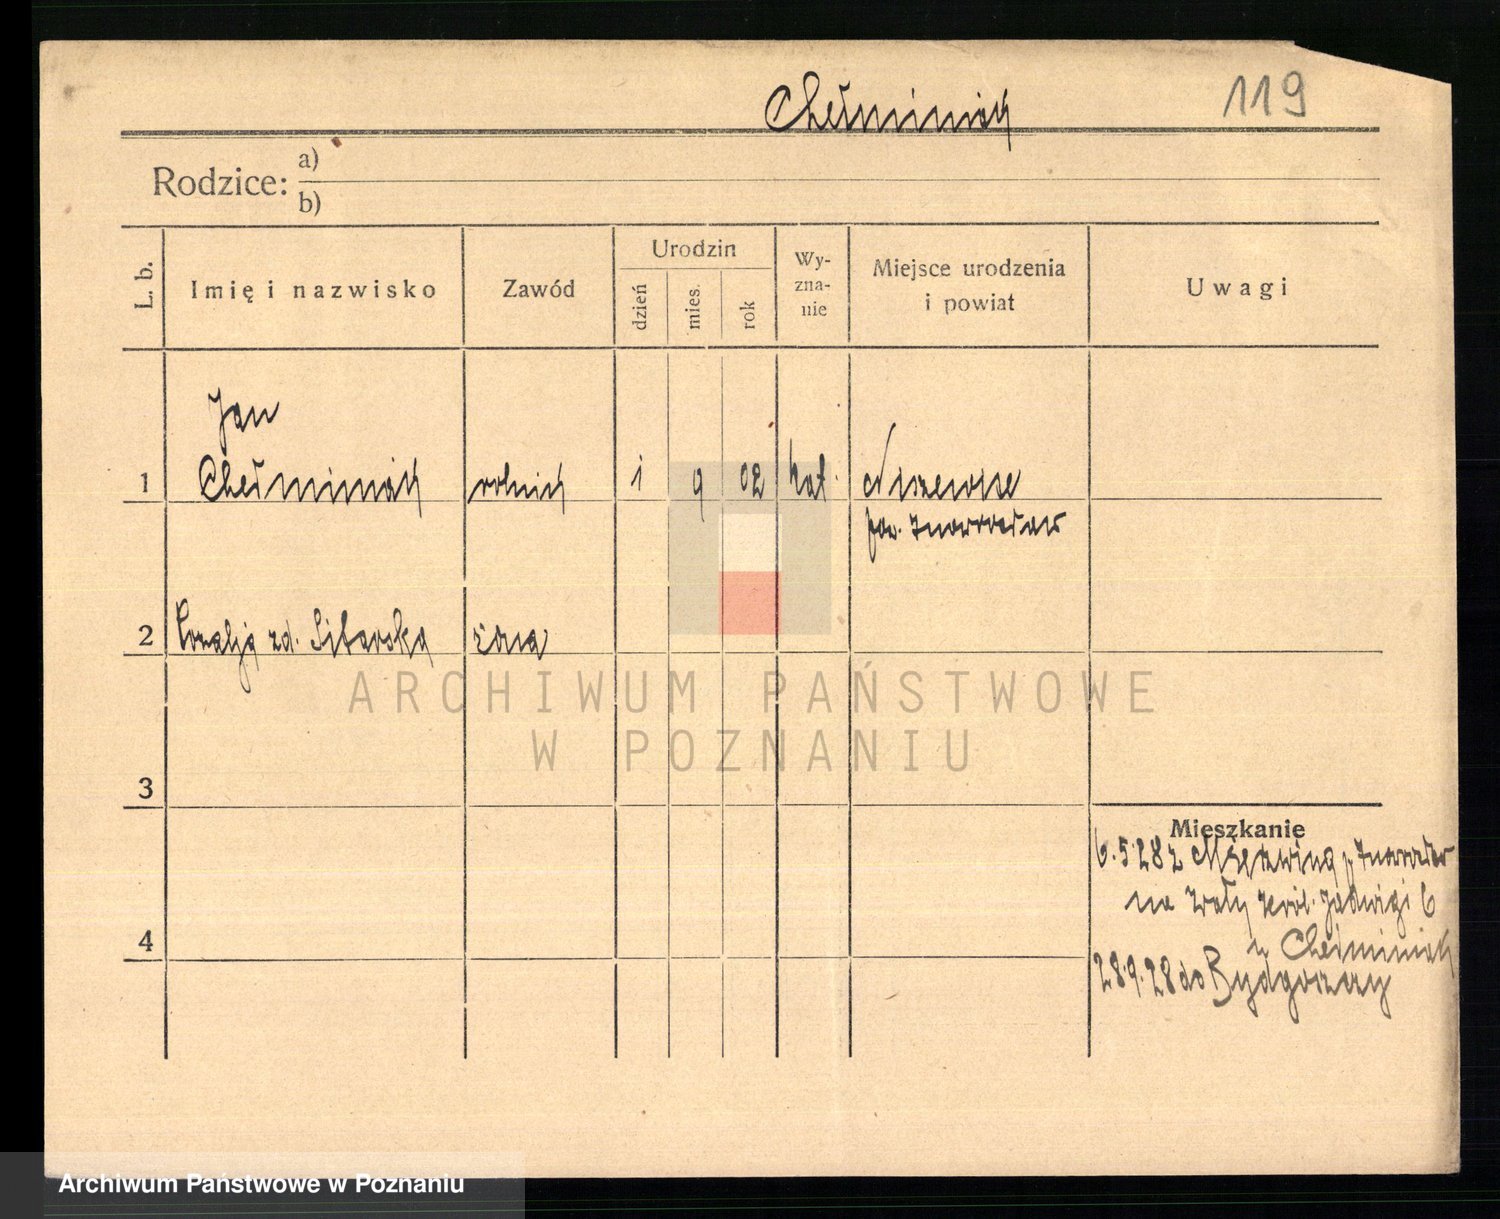 Chełminiak
119
Rodzice: a)
b)
L. b.
Imię i nazwisko
Zawód
Urodzin
dzień
mies.
rok
Wy-
zna-
nie
Miejsce urodzenia
i powiat
Uwagi
Jan
1 Chełminiak rolnik 1 9 02 kat.
pow. Inowrocław
2 zd. Sikorska żona
3
4
Mieszkanie
6.5.28 z Inowrocław
na Wały Król. Jadwigi 6
u Chełminiak
28.9.28 do Bydgoszczy
ARCHIWUM PAŃSTWOWE
W POZNANIU
Archiwum Państwowe w Poznaniu